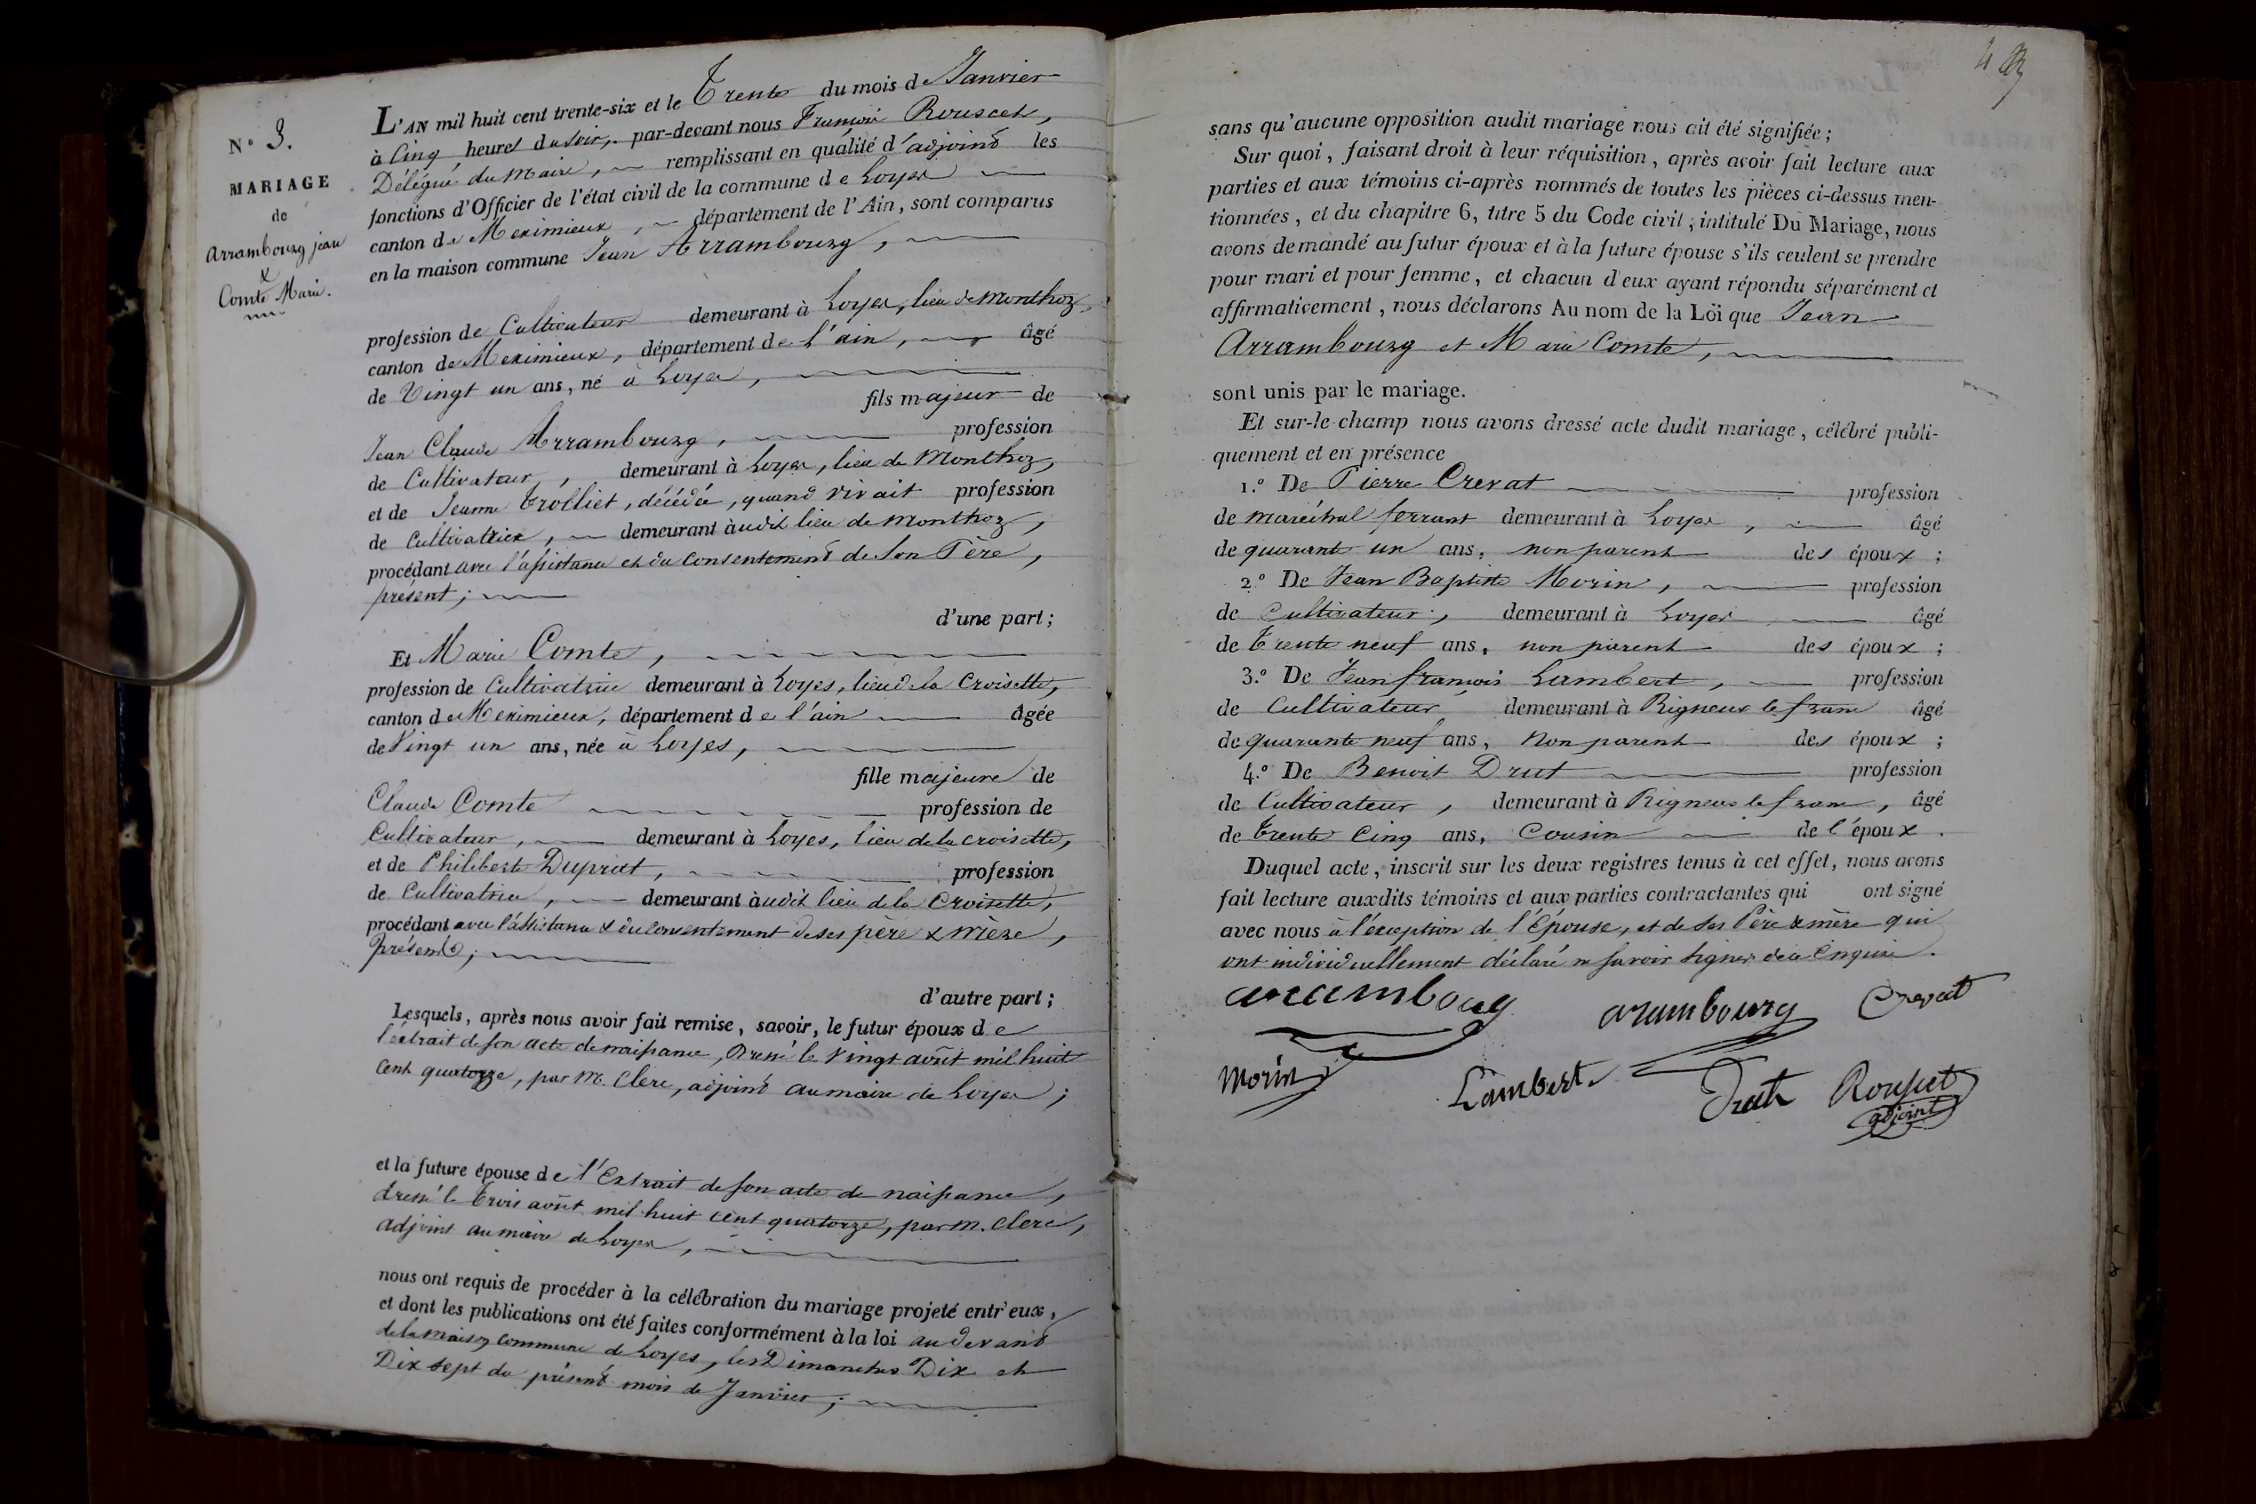 N° 3.
MARIAGE
de
Arrambourg jean
&
Comte Marie.
L'AN mil huit cent trente-six et le Trente du mois de Janvier
à Cinq heures du soir, par-devant nous François Rousset,
Délégué du Maire, remplissant en qualité d'adjoint les
fonctions d'Officier de l'état civil de la commune de Loyes
canton de Meximieux, département de l'Ain, sont comparus
en la maison commune Jean Arrambourg,
profession de Cultivateur demeurant à Loyes, lieu de Monthoz,
canton de Meximieux, département de l'ain, âgé
de Vingt un ans, né à Loyes,
fils majeur de
Jean Claude Arrambourg, profession
de Cultivateur, demeurant à Loyes, lieu de Monthoz,
et de Jeanne Trolliet, décédée, quand vivait profession
de Cultivatrice, demeurant audit lieu de Monthoz,
procédant avec l'assistance et du consentement de son Père,
présent;
d'une part;
Et Marie Comte,
profession de Cultivatrice demeurant à Loyes, lieu de la Croisette,
canton de Meximieux, département de l'ain âgée
de Vingt un ans, née à Loyes,
fille majeure de
Claude Comte profession de
Cultivateur, demeurant à Loyes, lieu de la croisette,
et de Philiberte Dupriat, profession
de Cultivatrice, demeurant audit lieu de la Croisette,
procédant avec l'assistance & du consentement de ses père & mère,
présents;
d'autre part;
Lesquels, après nous avoir fait remise, savoir, le futur époux de
l'extrait de son acte de naissance, dressé le Vingt août mil huit
cent quatorze, par M. Clerc, adjoint au maire de Loyes;
et la future épouse de l'Extrait de son acte de naissance,
dressé le trois août mil huit cent quatorze, par M. Clerc,
adjoint au maire de Loyes,
nous ont requis de procéder à la célébration du mariage projeté entr'eux,
et dont les publications ont été faites conformément à la loi au devant
de la maison commune de Loyes, les Dimanches Dix et
Dix sept du présent mois de Janvier;
sans qu'aucune opposition audit mariage nous ait été signifiée;
Sur quoi, faisant droit à leur réquisition, après avoir fait lecture aux
parties et aux témoins ci-après nommés de toutes les pièces ci-dessus men-
tionnées, et du chapitre 6, titre 5 du Code civil, intitulé Du Mariage, nous
avons demandé au futur époux et à la future épouse s'ils veulent se prendre
pour mari et pour femme, et chacun d'eux ayant répondu séparément et
affirmativement, nous déclarons Au nom de la Loi que Jean
Arrambourg et Marie Comte,
sont unis par le mariage.
Et sur-le-champ nous avons dressé acte dudit mariage, célébré publi-
quement et en présence
1.° De Pierre Crevat profession
de maréchal ferrant demeurant à Loyes, âgé
de quarante un ans, non parent des époux;
2.° De Jean Baptiste Morin, profession
de Cultivateur, demeurant à Loyes âgé
de trente neuf ans, non parent des époux;
3.° De Jean françois Lambert, profession
de Cultivateur demeurant à Rigneux le franc âgé
de quarante neuf ans, non parent des époux;
4.° De Benoit Drut profession
de Cultivateur, demeurant à Rigneux le franc, âgé
de trente Cinq ans, cousin de l'époux.
Duquel acte, inscrit sur les deux registres tenus à cet effet, nous avons
fait lecture auxdits témoins et aux parties contractantes qui ont signé
avec nous à l'exception de l'Epouse, et de ses Père & mère qui
ont individuellement déclaré ne savoir signer de ce Enquis.
arambourg
arambourg
Crevat
Morin
Lambert
Drut
Rousset
adjoint